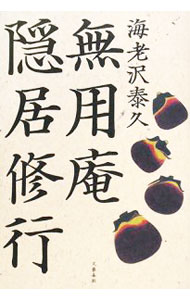 海老沢泰久
無用庵
隠居修行
文藝春秋